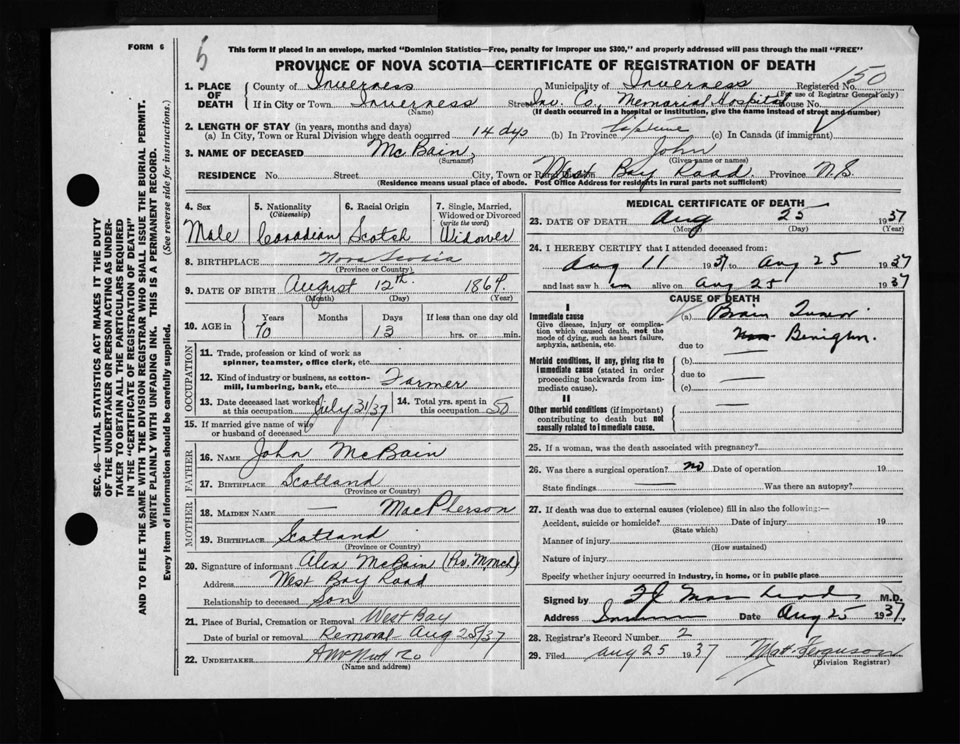 FORM 6
5
This form if placed in an envelope, marked "Dominion Statistics—Free, penalty for improper use $300," and properly addressed will pass through the mail "FREE"
PROVINCE OF NOVA SCOTIA—CERTIFICATE OF REGISTRATION OF DEATH
1. PLACE OF DEATH
County of Inverness Municipality of Inverness Registered No. 150
(For use of Registrar General only)
If in City or Town Inverness Street Inv. Co. Memorial Hospital House No.
(Name) (If death occurred in a hospital or institution, give the name instead of street and number)
2. LENGTH OF STAY (in years, months and days)
(a) In City, Town or Rural Division where death occurred 14 dys (b) In Province Lifetime (c) In Canada (if immigrant)
3. NAME OF DECEASED McBain, John
(Surname) (Given name or names)
RESIDENCE No. Street City, Town or Rural Division West Bay Road Province N.S.
(Residence means usual place of abode. Post Office Address for residents in rural parts not sufficient)
SEC. 46—VITAL STATISTICS ACT MAKES IT THE DUTY
OF THE UNDERTAKER OR PERSON ACTING AS UNDER-
TAKER TO OBTAIN ALL THE PARTICULARS REQUIRED
IN THE "CERTIFICATE OF REGISTRATION OF DEATH"
AND TO FILE THE SAME WITH THE DIVISION REGISTRAR WHO SHALL ISSUE THE BURIAL PERMIT.
WRITE PLAINLY WITH UNFADING INK. THIS IS A PERMANENT RECORD.
Every item of information should be carefully supplied. (See reverse side for instructions.)
4. Sex
Male
5. Nationality
(Citizenship)
Canadian
6. Racial Origin
Scotch
7. Single, Married, Widowed or Divorced
(write the word)
Widower
8. BIRTHPLACE Nova Scotia
(Province or Country)
9. DATE OF BIRTH August 12th 1864
(Month) (Day) (Year)
10. AGE in Years Months Days If less than one day old
70 13 hrs. or min.
OCCUPATION
11. Trade, profession or kind of work as
spinner, teamster, office clerk, etc.
12. Kind of industry or business, as cotton-
mill, lumbering, bank, etc. Farmer
13. Date deceased last worked at this occupation July 31/37
14. Total yrs. spent in this occupation 50
15. If married give name of wife
or husband of deceased
FATHER
16. NAME John McBain
17. BIRTHPLACE Scotland
(Province or Country)
MOTHER
18. MAIDEN NAME — MacPherson
19. BIRTHPLACE Scotland
(Province or Country)
20. Signature of informant Alex McBain
Address West Bay Road
Relationship to deceased Son
21. Place of Burial, Cremation or Removal West Bay
Date of burial or removal Removal Aug 25/37
22. UNDERTAKER
(Name and address)
MEDICAL CERTIFICATE OF DEATH
23. DATE OF DEATH Aug 25 1937
(Month) (Day) (Year)
24. I HEREBY CERTIFY that I attended deceased from:
Aug 11 1937 to Aug 25 1937
and last saw him alive on Aug 25 1937
CAUSE OF DEATH
I
Immediate cause
Give disease, injury or complica-
tion which caused death, not the
mode of dying, such as heart failure,
asphyxia, asthenia, etc.
(a) Brain Tumor
Benign
due to —
Morbid conditions, if any, giving rise to
immediate cause (stated in order
proceeding backwards from im-
mediate cause).
(b)
due to —
(c)
II
Other morbid conditions (if important)
contributing to death but not
causally related to immediate cause.
25. If a woman, was the death associated with pregnancy?
26. Was there a surgical operation? no Date of operation 19
State findings — Was there an autopsy?
27. If death was due to external causes (violence) fill in also the following:—
Accident, suicide or homicide? Date of injury 19
(State which)
Manner of injury
(How sustained)
Nature of injury
Specify whether injury occurred in industry, in home, or in public place
Signed by M.D.
Address Date Aug 25 1937
28. Registrar's Record Number 2
29. Filed aug 25 1937 Ferguson
(Division Registrar)